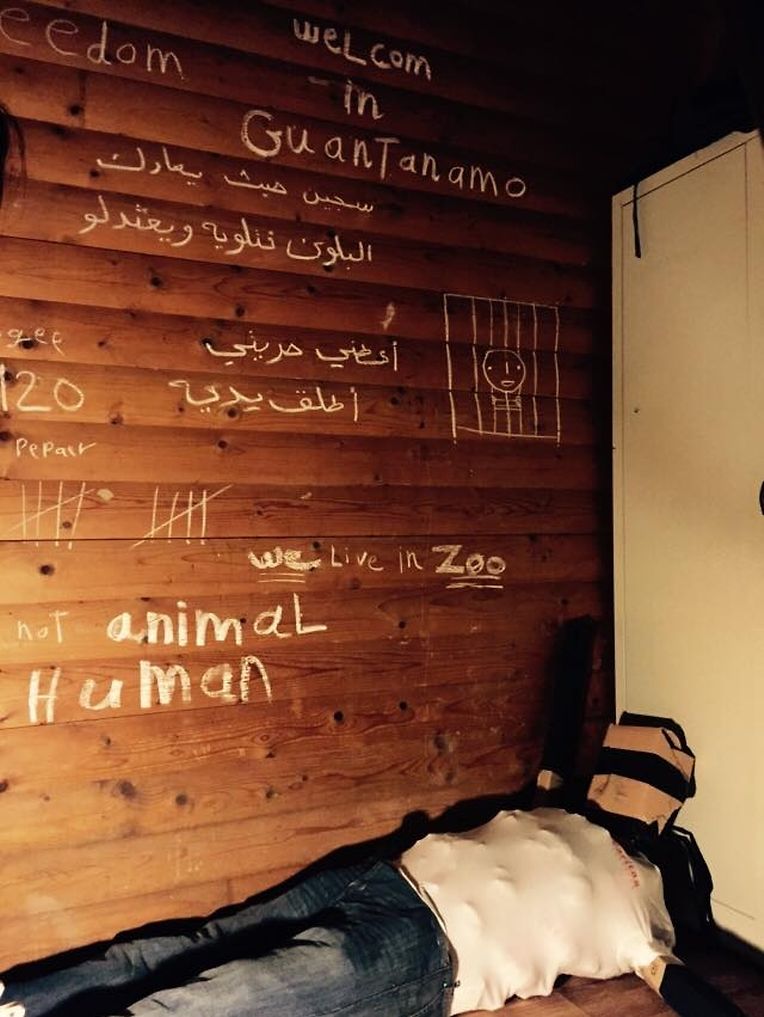 eedom
weLcom
in
GuanTanamo
سجين حيث يعادت
البلون نتلويه ويعتدلو
gee
أعطني حريتي
120
أطلق يديه
Pepair
we Live in Zoo
not animaL
Human